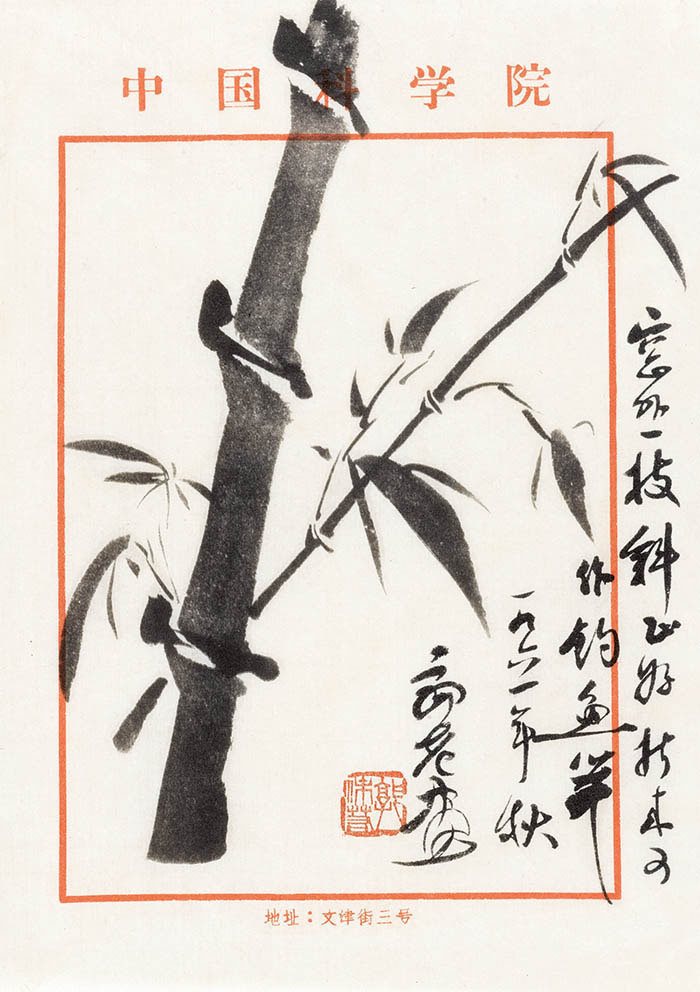 中国科学院
窗外一枝斜正好折来可
作钓鱼竿
一九六一年秋
郭沫若
地址：文津街三号